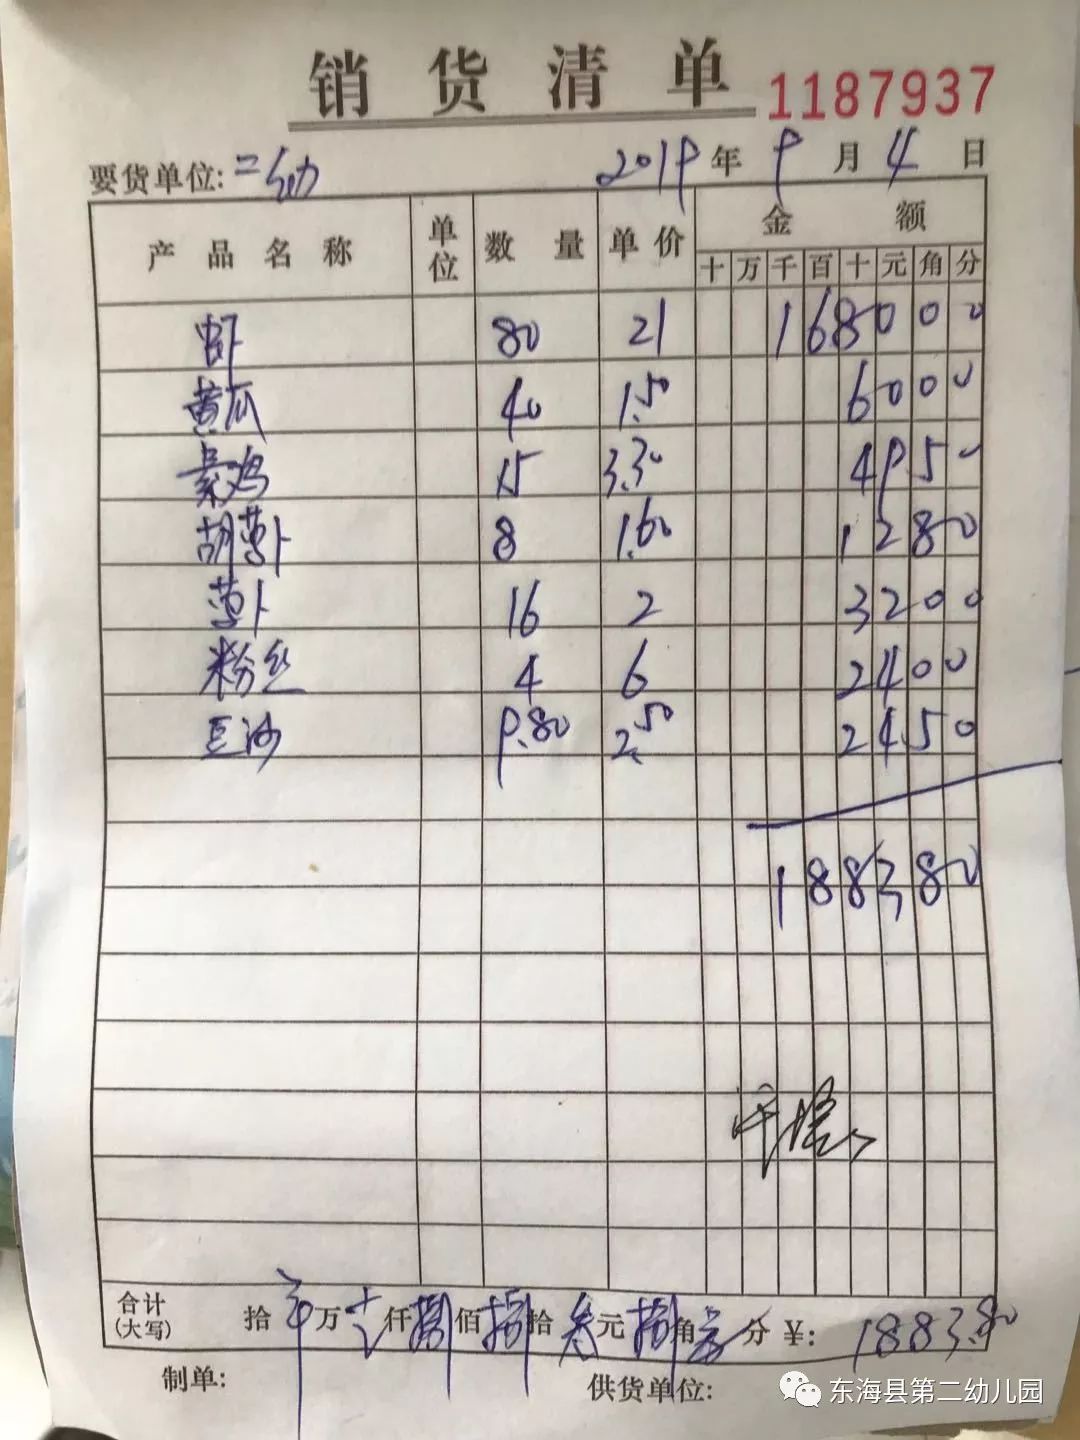 销货清单 1187937
要货单位: 二幼 2019 年 9 月 4 日
产品名称 单位 数量 单价 金额
十 万 千 百 十 元 角 分
虾 80 21 1 6 8 0 0 0
黄瓜 40 1.50 6 0 0 0
素鸡 15 3.30 4 9 5 0
胡萝卜 8 1.60 1 2 8 0
萝卜 16 2 3 2 0 0
粉丝 4 6 2 4 0 0
豆沙 9.80 2.50 2 4 5 0
1 8 8 3 8 0
合计(大写) 拾 万 仟 捌 佰 捌 拾 叁 元 捌 角 分 ¥: 1883.80
制单: 供货单位:
东海县第二幼儿园